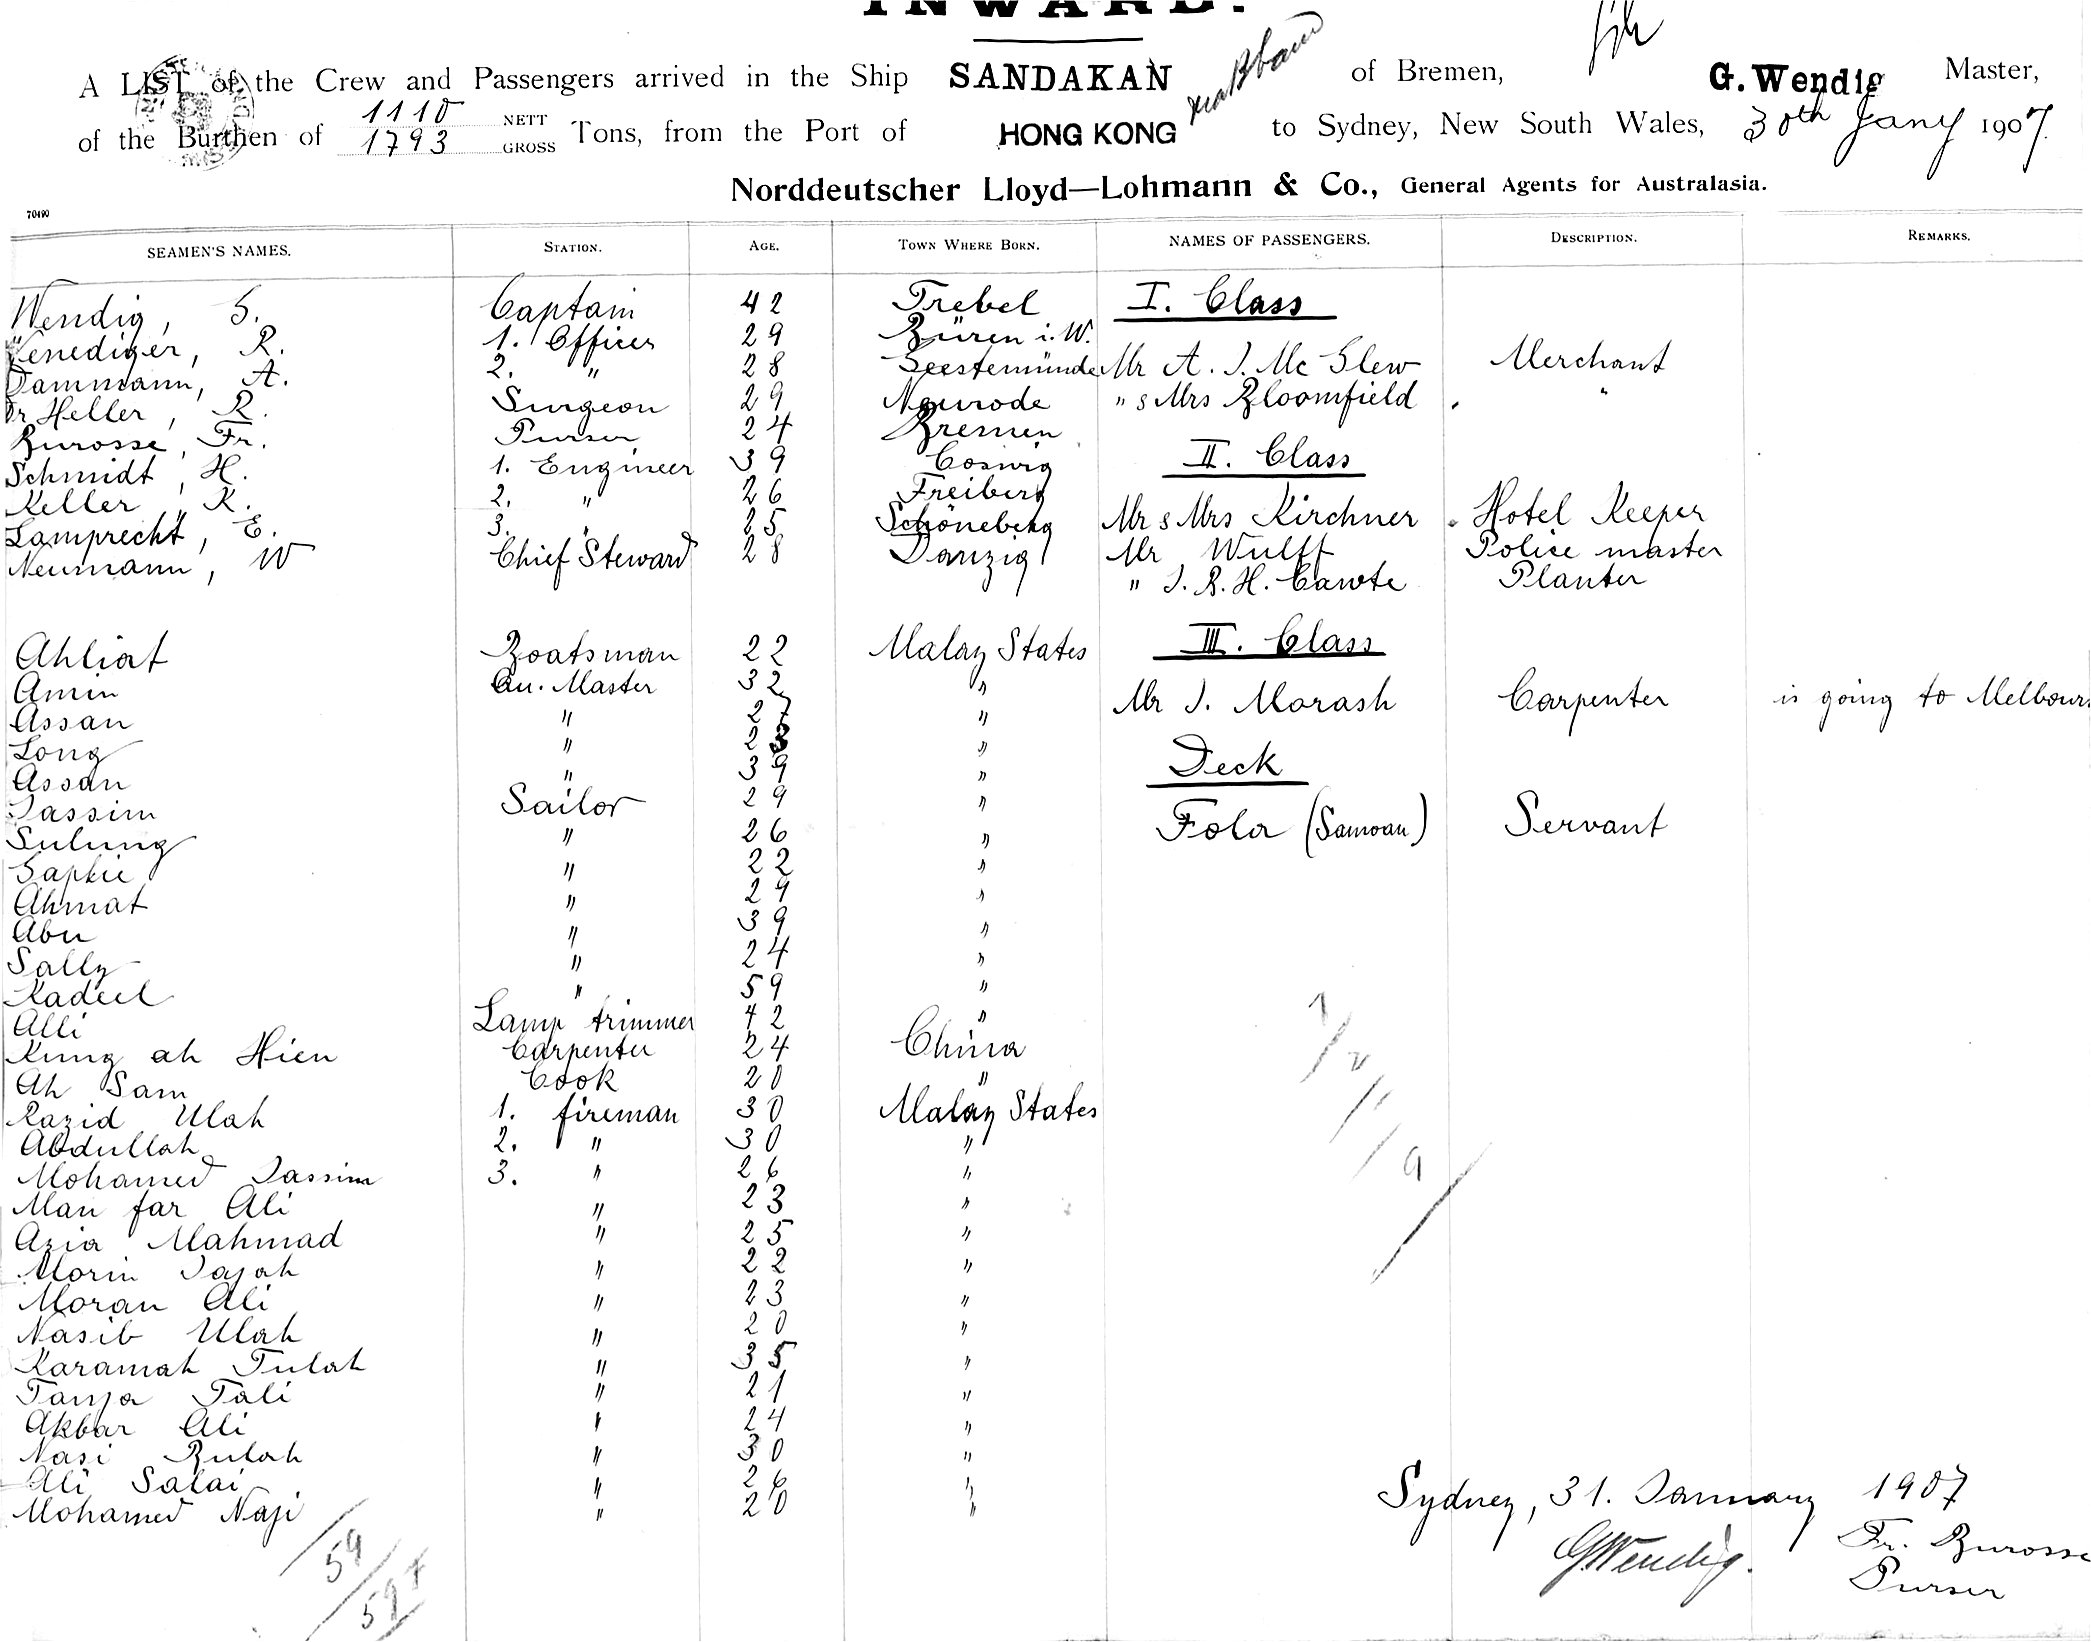 INWARD.
A LIST of the Crew and Passengers arrived in the Ship SANDAKAN of Bremen, G. Wendig Master,
of the Burthen of 1110 NETT 1793 GROSS Tons, from the Port of HONG KONG to Sydney, New South Wales, 30th Jany 1907.
Norddeutscher Lloyd—Lohmann & Co., General Agents for Australasia.
70490
SEAMEN'S NAMES. STATION. AGE. TOWN WHERE BORN. NAMES OF PASSENGERS. DESCRIPTION. REMARKS.
Wendig, G. Captain 42 Trebel I. Class
Venediger, R. 1. Officer 29 Büren i. W.
Dammann, A. 2. " 28 Geestemünde Mr A. J. Mc Glew Merchant
Dr Heller, R. Surgeon 29 Neurode " & Mrs Bloomfield "
Burosse, Fr. Purser 24 Bremen
Schmidt, H. 1. Engineer 39 Coswig II. Class
Keller, K. 2. " 26 Freiberg
Lamprecht, E. 3. " 25 Schöneberg Mr & Mrs Kirchner Hotel Keeper
Neumann, W Chief Steward 28 Danzig Mr Wulff Police master
" J. B. H. Cawte Planter
Ahliat Boatsman 22 Malay States III. Class
Amin Qu. Master 32 "
Assan " 27 " Mr J. Morash Carpenter is going to Melbourn
Long " 23 "
Assan " 39 " Deck
Jassim Sailor 29 "
Sulung " 26 " Fola (Samoan) Servant
Sapkie " 22 "
Ahmat " 29 "
Abu " 39 "
Sally " 24 "
Kadeel " 59 "
Alli Lamp trimmer 42 "
Kung ah Hien Carpenter 24 China
Ah Sam Cook 20 "
Razid Ulah 1. fireman 30 Malay States
Abdullah 2. " 30 "
Mohamed Jassim 3. " 26 "
Man far Ali " 23 "
Azia Mahmad " 25 "
Morin Jajah " 22 "
Moran Ali " 23 "
Nasib Ulah " 20 "
Karamah Tulah " 35 "
Tanja Tali " 21 "
Akbar Ali " 24 "
Nasi Bulah " 30 "
Ali Salai " 26 "
Mohamed Naji " 20 "
Sydney, 31. January 1907
GWendig. Fr. Burosse
Purser
59
59